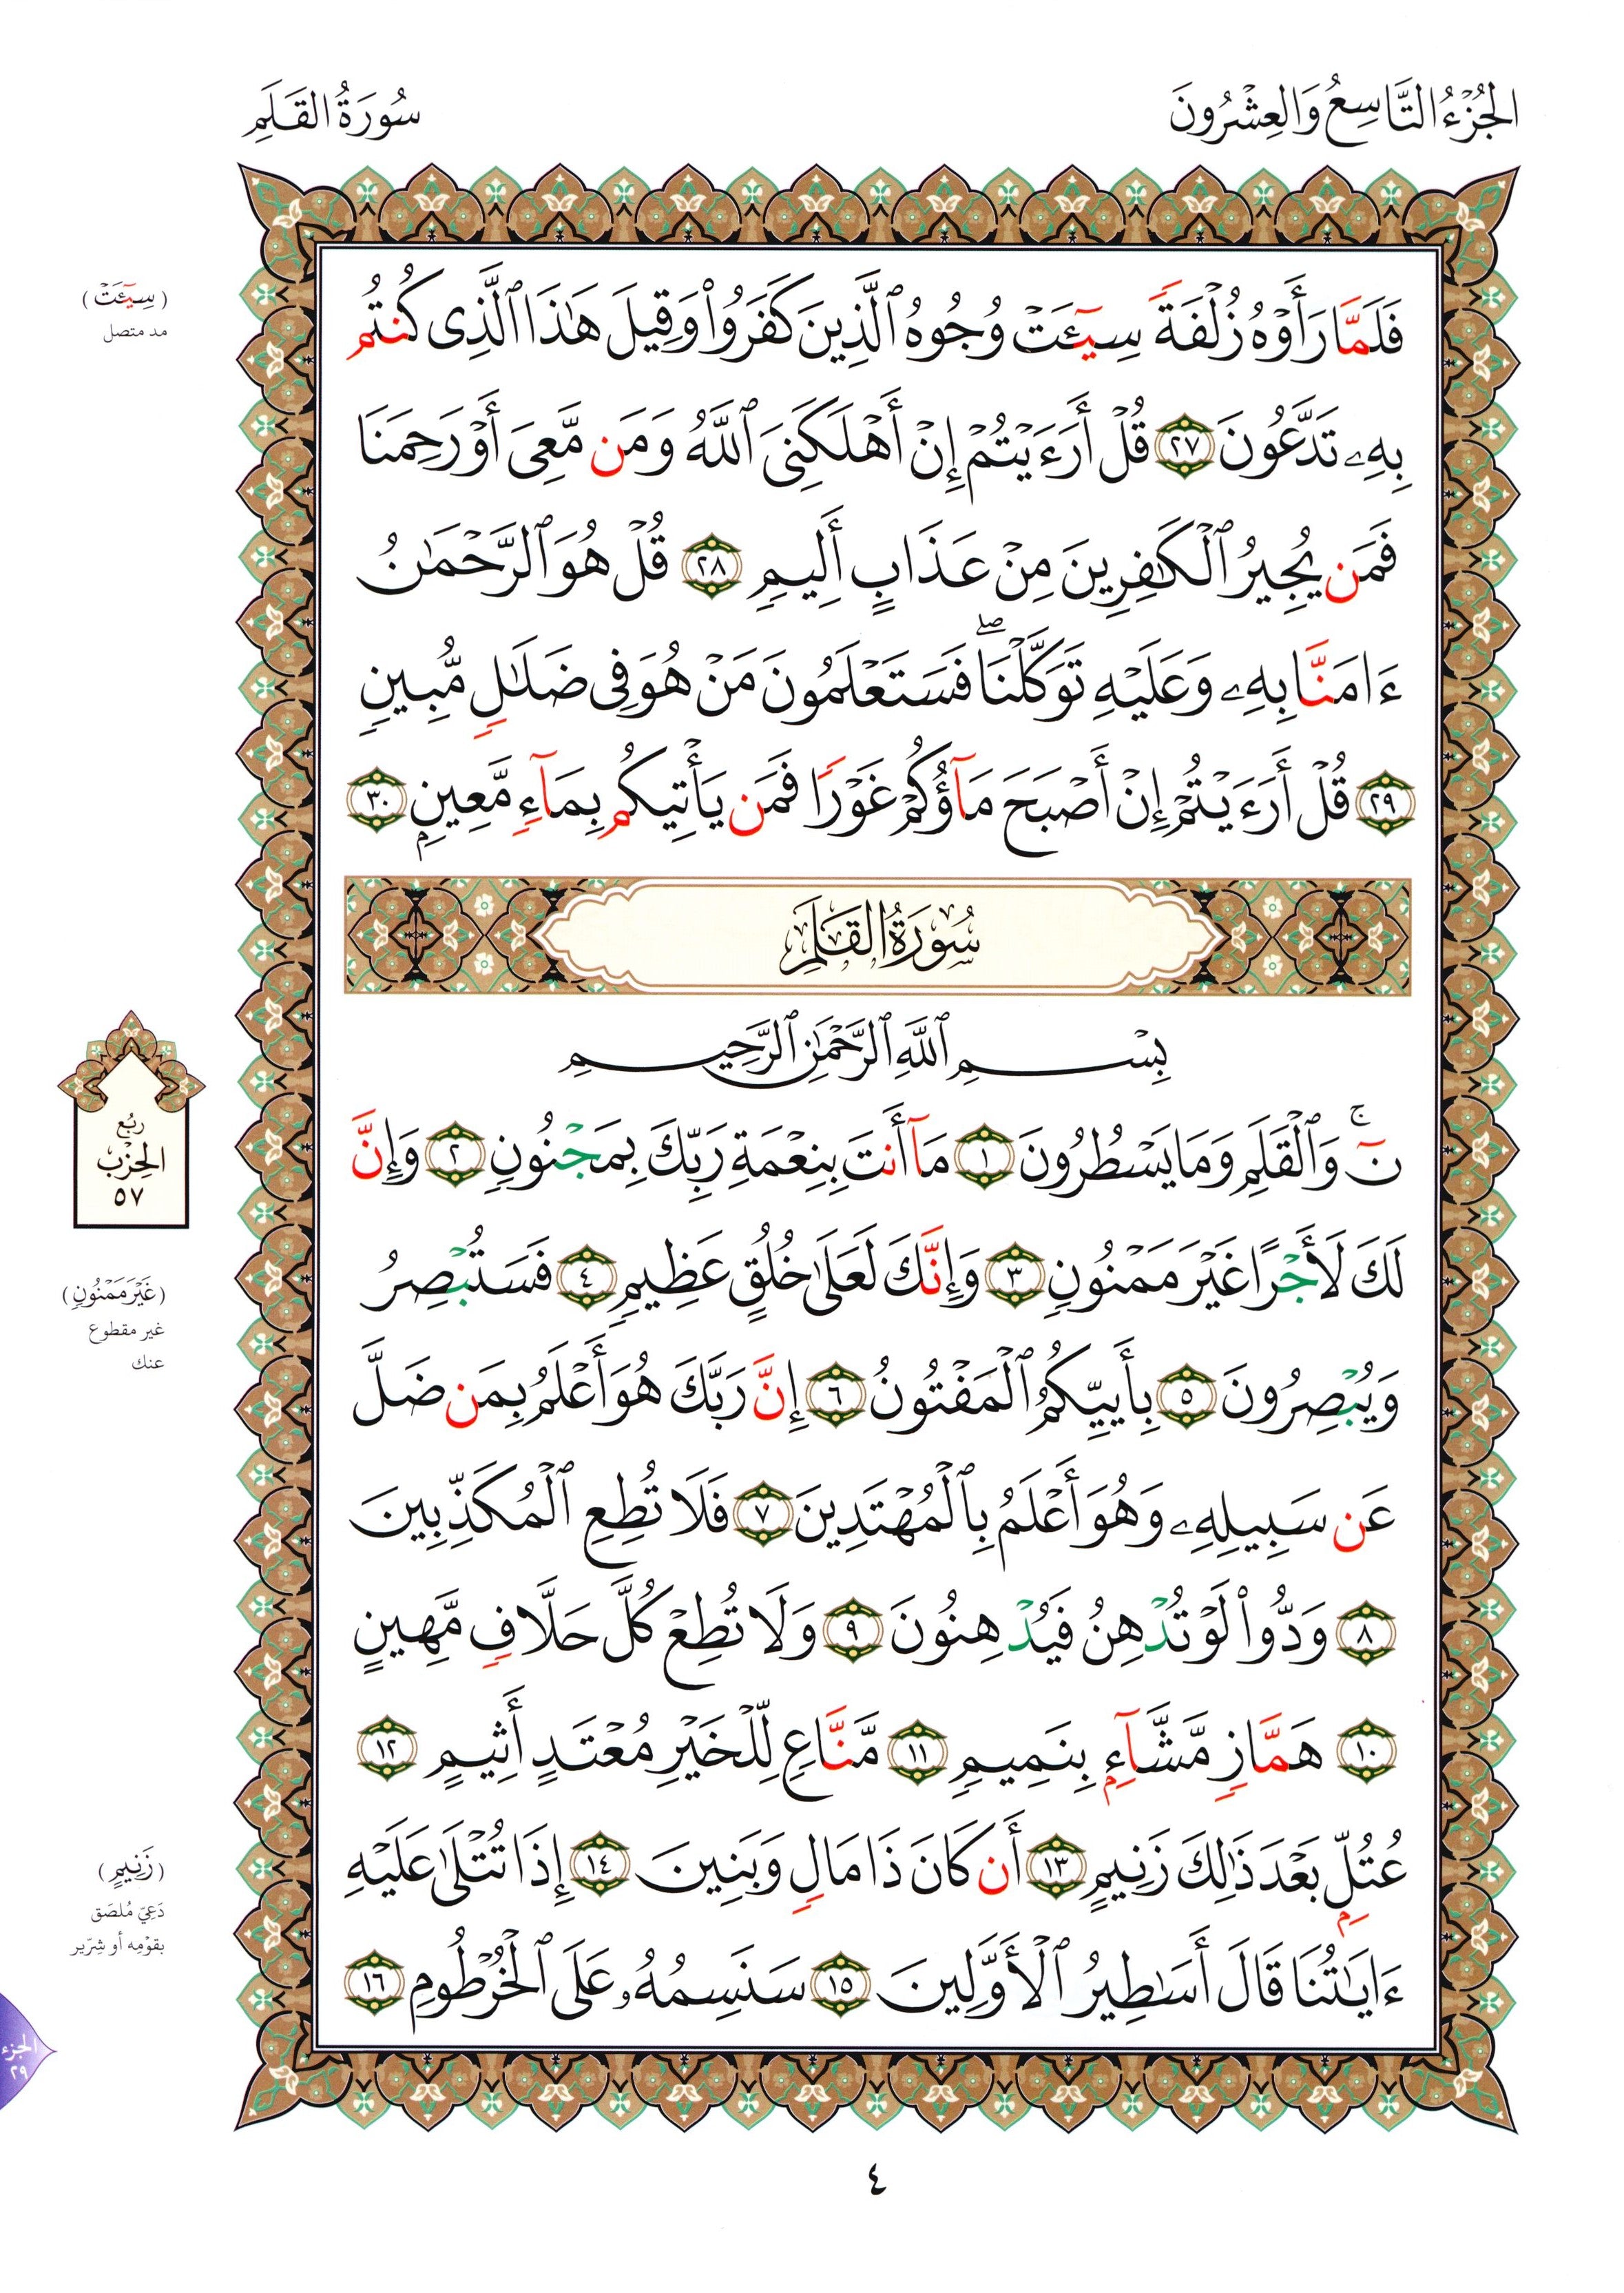 الجُزْءُ التَّاسِعُ وَالعِشْرُونَ
سُورَةُ القَلَمِ
فَلَمَّا رَأَوْهُ زُلْفَةً سِيٓـَٔتْ وُجُوهُ ٱلَّذِينَ كَفَرُوا۟ وَقِيلَ هَـٰذَا ٱلَّذِى كُنتُم
بِهِۦ تَدَّعُونَ ٢٧ قُلْ أَرَءَيْتُمْ إِنْ أَهْلَكَنِىَ ٱللَّهُ وَمَن مَّعِىَ أَوْ رَحِمَنَا
فَمَن يُجِيرُ ٱلْكَـٰفِرِينَ مِنْ عَذَابٍ أَلِيمٍ ٢٨ قُلْ هُوَ ٱلرَّحْمَـٰنُ
ءَامَنَّا بِهِۦ وَعَلَيْهِ تَوَكَّلْنَا ۖ فَسَتَعْلَمُونَ مَنْ هُوَ فِى ضَلَـٰلٍ مُّبِينٍ
٢٩ قُلْ أَرَءَيْتُمْ إِنْ أَصْبَحَ مَآؤُكُمْ غَوْرًا فَمَن يَأْتِيكُم بِمَآءٍ مَّعِينٍۭ ٣٠
سُورَةُ القَلَمِ
بِسْمِ ٱللَّهِ ٱلرَّحْمَـٰنِ ٱلرَّحِيمِ
نٓ ۚ وَٱلْقَلَمِ وَمَا يَسْطُرُونَ ١ مَآ أَنتَ بِنِعْمَةِ رَبِّكَ بِمَجْنُونٍ ٢ وَإِنَّ
لَكَ لَأَجْرًا غَيْرَ مَمْنُونٍ ٣ وَإِنَّكَ لَعَلَىٰ خُلُقٍ عَظِيمٍ ٤ فَسَتُبْصِرُ
وَيُبْصِرُونَ ٥ بِأَييِّكُمُ ٱلْمَفْتُونُ ٦ إِنَّ رَبَّكَ هُوَ أَعْلَمُ بِمَن ضَلَّ
عَن سَبِيلِهِۦ وَهُوَ أَعْلَمُ بِٱلْمُهْتَدِينَ ٧ فَلَا تُطِعِ ٱلْمُكَذِّبِينَ
٨ وَدُّوا۟ لَوْ تُدْهِنُ فَيُدْهِنُونَ ٩ وَلَا تُطِعْ كُلَّ حَلَّافٍ مَّهِينٍ
١٠ هَمَّازٍ مَّشَّآءٍۭ بِنَمِيمٍ ١١ مَّنَّاعٍ لِّلْخَيْرِ مُعْتَدٍ أَثِيمٍ ١٢
عُتُلٍّۭ بَعْدَ ذَٰلِكَ زَنِيمٍ ١٣ أَن كَانَ ذَا مَالٍ وَبَنِينَ ١٤ إِذَا تُتْلَىٰ عَلَيْهِ
ءَايَـٰتُنَا قَالَ أَسَـٰطِيرُ ٱلْأَوَّلِينَ ١٥ سَنَسِمُهُۥ عَلَى ٱلْخُرْطُومِ ١٦
(سِيٓـَٔتْ)
مد متصل
ربُع
الحِزْب
٥٧
(غَيْرَ مَمْنُونٍ)
غير مقطوع
عنك
(زَنِيمٍ)
دَعِيّ مُلصَق
بقوْمِه أو شِرّير
الجزء
٢٩
٤